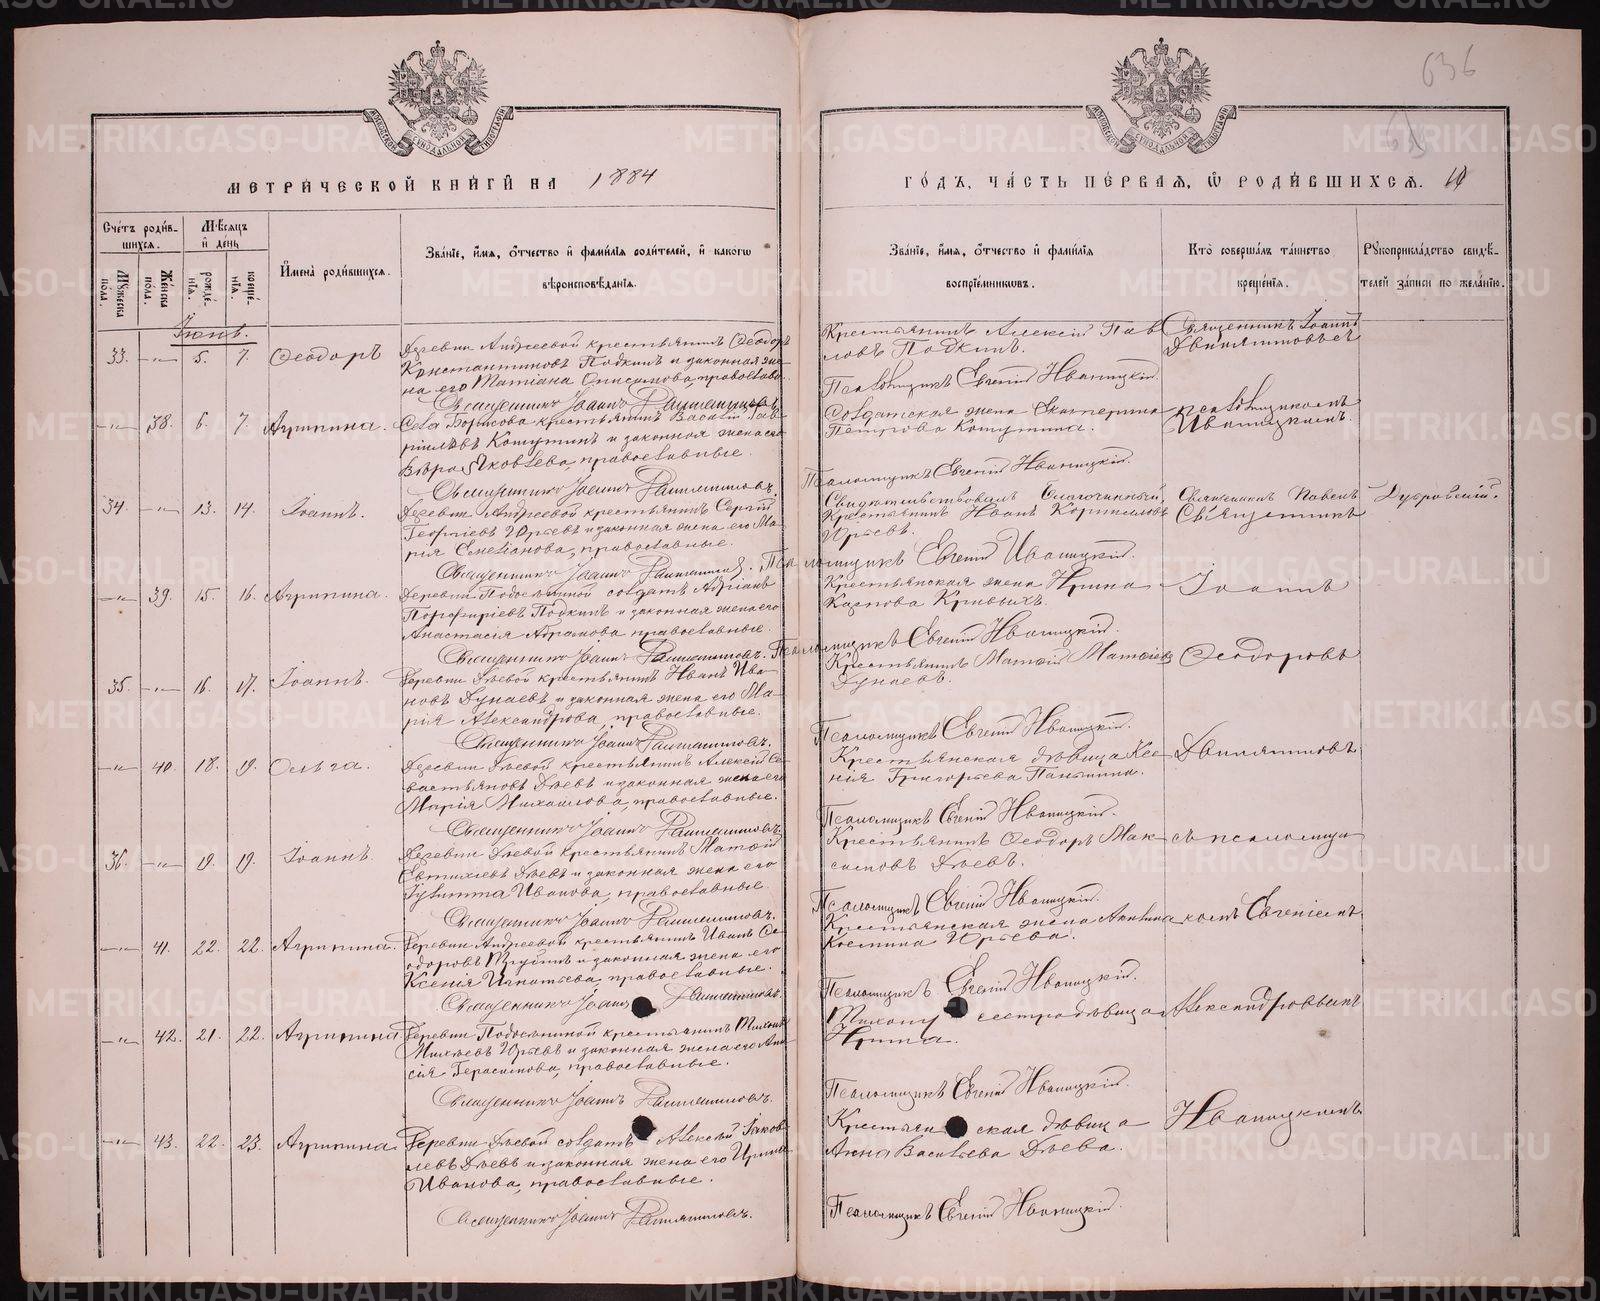 636
МЕТРИ́ЧЕСКОЙ КНИ́ГИ НА 1884
ГО́ДЪ, ЧА́СТЬ ПЕ́РВАЯ, Ѡ РОДИ́ВШИХСЯ. 10
Сче́тъ роди́в-
шихся.
Му́жеска по́ла.
Же́нска по́ла.
Мѣ́сяцъ и́ де́нь
рожде́нїя.
креще́нїя.
И҆мена̀ роди́вшихся.
Зва́нїе, и҆́мя, ѻ҆́тчество и҆ фами́лїя роди́телей, и҆ како́гѡ
вѣроисповѣ́данїя.
Зва́нїе, и҆́мя, ѻ҆́тчество и҆ фами́лїя
воспрїе́мникωвъ.
Кто̀ соверша́лъ та́инство
креще́нїя.
Рꙋкоприкла́дство свидѣ́-
телей за́писи по жела́нїю.
Іюнь.
33. —"— 5. 7. Ѳеодоръ
Деревни Андреевой крестьянинъ Ѳеодоръ
Константиновъ Подкинъ и законная же-
на его Татіана Онисимова, православн.
Священникъ Іоаннъ
Крестьянинъ Алексій Пав-
ловъ Подкинъ.
Псаломщикъ Евгеній Иваницкій.
Священникъ Іоаннъ
—"— 38. 6. 7. Агрипина.
Села Борисова крестьянинъ Василій Гав-
риловъ Кошутинъ и законная жена его
Вѣра Яковлева, православные.
Священникъ Іоаннъ
Солдатская жена Екатерина
Петрова Кошутина.
Псаломщикъ Евгеній Иваницкій.
псаломщикомъ
Иваницкимъ.
34. —"— 13. 14. Іоаннъ.
Деревни Андреевой крестьянинъ Сергій
Георгіевъ Юрьевъ и законная жена его Ма-
рія Семенова, православные.
Священникъ Іоаннъ
Свидѣтельствовалъ Благочинный,
Крестьянинъ Иванъ Корниловъ
Юрьевъ.
Псаломщикъ Евгеній Иваницкій.
Священникъ Павелъ Дубровскій.
Священникъ
—"— 39. 15. 16. Агрипина.
Деревни солдатъ Адріанъ
Порфиріевъ Подкинъ и законная жена его
Анастасія Абрамова православные.
Священникъ Іоаннъ
Крестьянская жена Ирина
Карпова Кривыхъ.
Псаломщикъ Евгеній Иваницкій.
Іоаннъ
35. —"— 16. 17. Іоаннъ.
Деревни Дѣевой крестьянинъ Иванъ Ива-
новъ Дунаевъ и законная жена его Ма-
рія Александрова, православные.
Священникъ Іоаннъ
Крестьянинъ Матѳій Матѳіевъ
Дунаевъ.
Псаломщикъ Евгеній Иваницкій.
Ѳеодоровъ
—"— 40. 18. 19. Ольга.
Деревни Дѣевой крестьянинъ Алексій Се-
вастьяновъ Дѣевъ и законная жена его
Марія Михаилова, православные.
Священникъ Іоаннъ
Крестьянская дѣвица Ксе-
нія Григорьева Паньшина.
Псаломщикъ Евгеній Иваницкій.
36. —"— 19. 19. Іоаннъ.
Деревни Дѣевой крестьянинъ Матѳій
Евтихіевъ Дѣевъ и законная жена его
Іулитта Иванова, православные.
Священникъ Іоаннъ
Крестьянинъ Ѳеодоръ Мак-
симовъ Дѣевъ.
Псаломщикъ Евгеній Иваницкій.
съ псаломщи-
—"— 41. 22. 22. Агрипина.
Деревни Андреевой крестьянинъ Иванъ Ѳе-
одоровъ и законная жена его
Ксенія Игнатьева, православные.
Священникъ Іоаннъ
Крестьянская жена Акилина
Космина Юрьева.
Псаломщикъ Евгеній Иваницкій.
комъ Евгеніемъ
—"— 42. 21. 22. Агрипина
Деревни крестьянинъ
Юрьевъ и законная жена его
Герасимова, православные.
Священникъ Іоаннъ
сестра дѣвица
Ирина.
Псаломщикъ Евгеній Иваницкій.
Александровымъ
—"— 43. 22. 23. Агрипина
Деревни Дѣевой солдатъ Алексѣй Іаков-
левъ Дѣевъ и законная жена его Ирина
Иванова, православные.
Священникъ Іоаннъ
Крестьянская дѣвица
Анна Васильева Дѣева.
Псаломщикъ Евгеній Иваницкій.
Иваницкимъ
METRIKI.GASO-URAL.RU